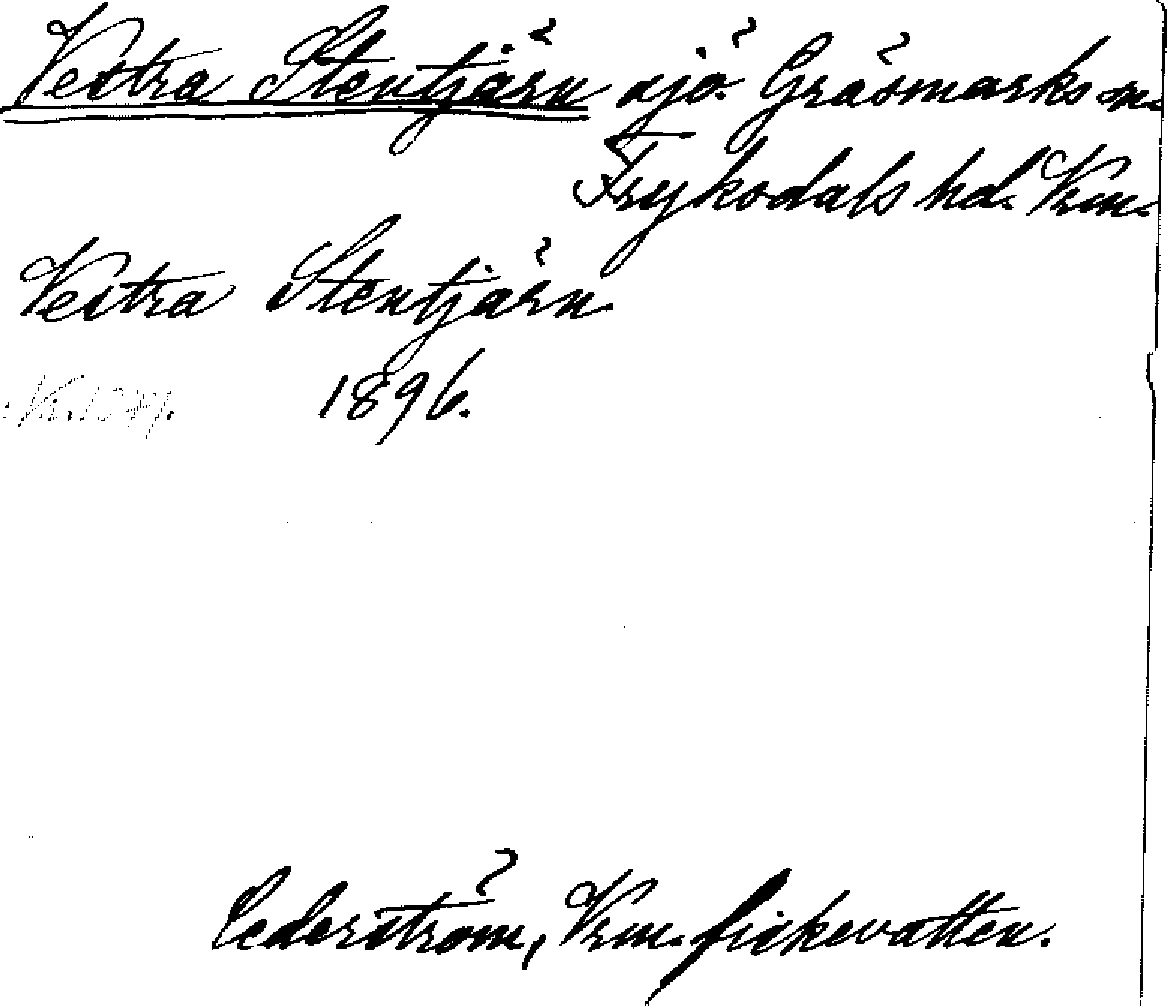 Vestra Stentjärn sjö. Gräsmarks sn.
Fryksdals hd. Vrm.
Vestra Stentjärn.
1896.
Cederström, Vrm. fiskevatten.